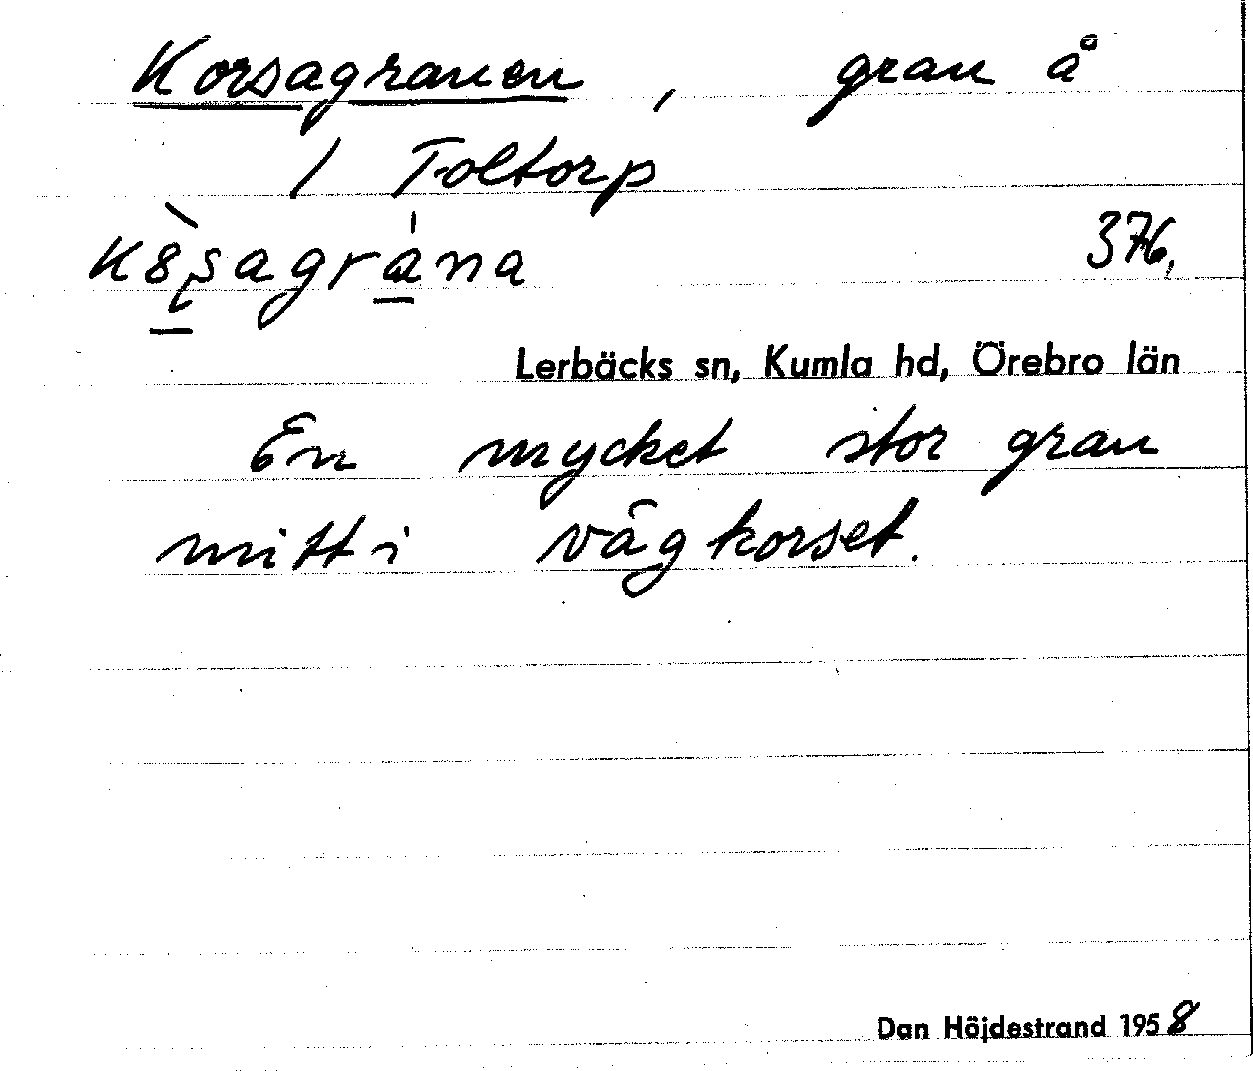 Korsagranen, gran å
/ Toltorp
K8̀ʂagrána 376,
Lerbäcks sn, Kumla hd, Örebro län
En mycket stor gran
mitt i vägkorset.
Dan Höjdestrand 1958